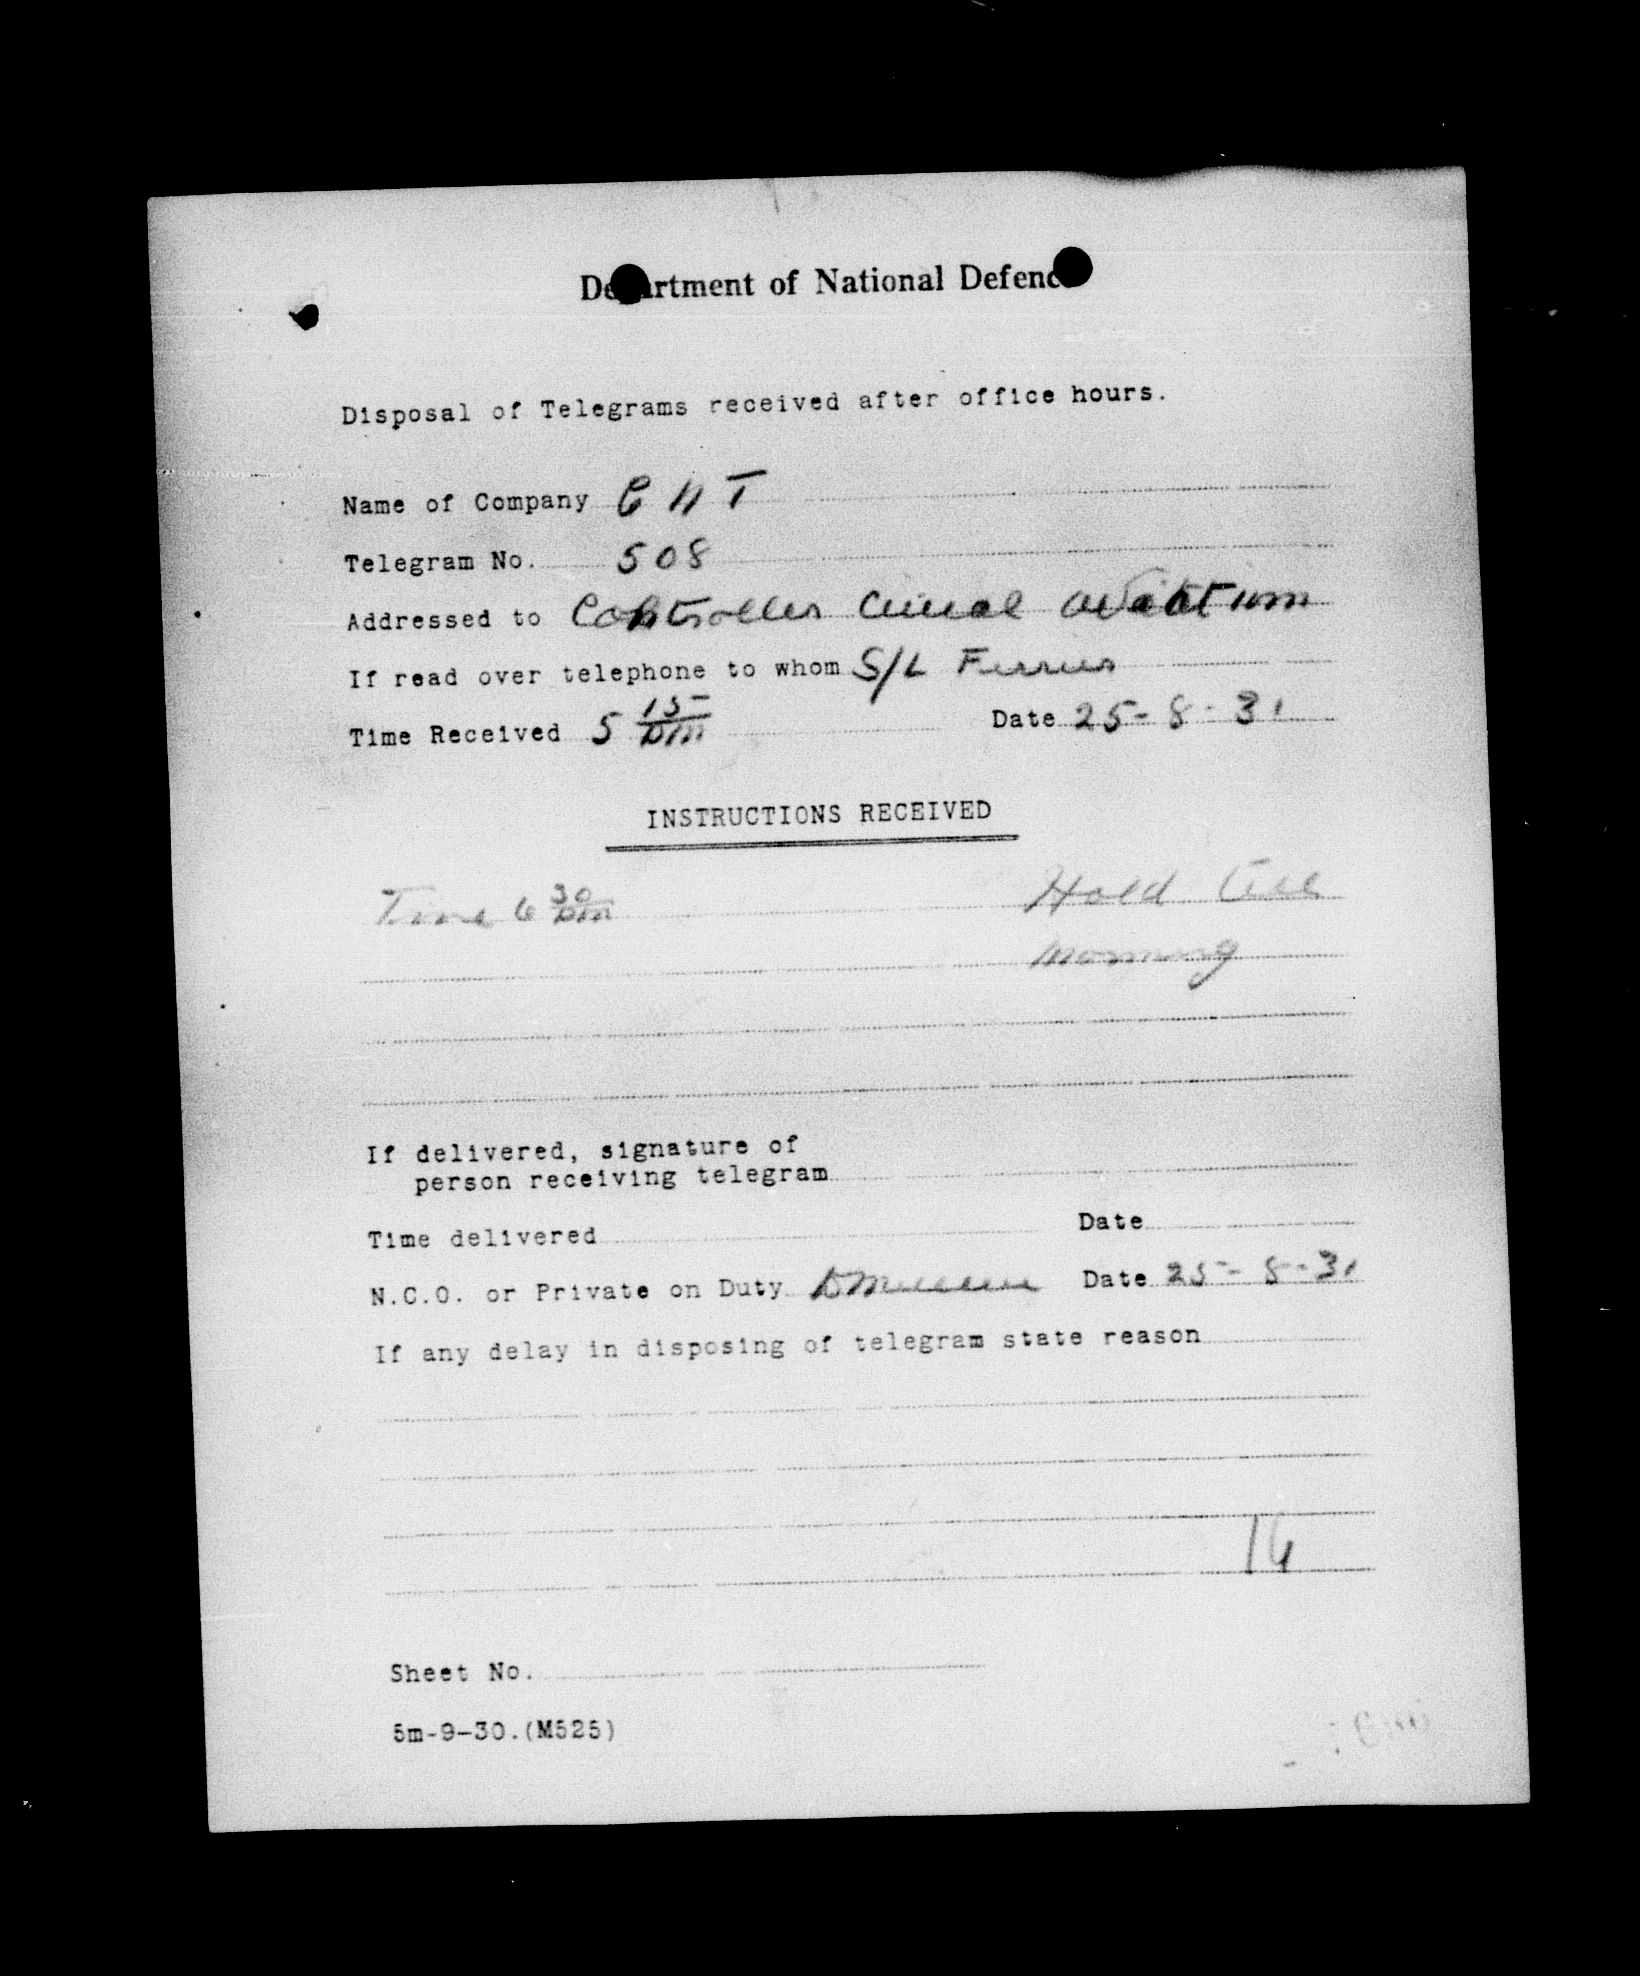 Department of National Defence
Disposal of Telegrams received after office hours.
Name of Company C N T
Telegram No. 508
Addressed to Controller Civial Aviation
If read over telephone to whom S/L Ferrier
Time Received 5 15 pm Date 25-8-31
INSTRUCTIONS RECEIVED
Time 6 30 pm Hold till
morning
If delivered, signature of
person receiving telegram
Time delivered Date
N.C.O. or Private on Duty Date 25-8-31
If any delay in disposing of telegram state reason
16
Sheet No.
5m-9-30.(M525)